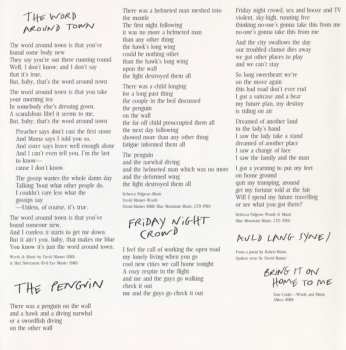 THE WORD
AROUND TOWN
The word around town is that you've
found some body new
They say you're out there running round
Well, I don't know; and I don't say
that it's true.
But, baby, that's the word around town
The word around town is that you take
your morning tea
In somebody else's dressing gown.
A scandalous libel it seems to me.
But, baby, that's the word around town
Preacher says don't cast the first stone
And Mama says I told you so.
And sister says leave well enough alone
And I can't even tell you, I'm the last
to know—
cause I don't know.
The group wastes the whole damn day
Talking 'bout what other people do.
I couldn't care less what the
gossips say
—Unless, of course, it's true.
The word around town is that you've
found someone new,
And I confess it starts to get me down
But it ain't you, baby, that makes me blue
You know it's just the word around town.
THE PENGUIN
There was a penguin on the wall
and a hawk and a diving narwhal
or a swordfish diving
on the other wall
There was a helmeted man meshed into
the mantle
The first night following
it was no more a helmeted man
than any other thing
the hawk's long wing
could be nothing other
than the hawk's long wing
upon the wall
the light destroyed them all
There was a child longing
for a long past thing
the couple in the bed discussed
the penguin
on the wall
the far off child preoccupied them all
the next day following
showed more than any other thing
fatigue informed them all
The penguin
and the narwhal diving
and the helmeted man which was no more
and the deformed wing
the light destroyed them all
FRIDAY NIGHT
CROWD
I feel the call of working the open road
my lonely living when you go
cool new cities we call home tonight
A cozy respite to the flight
and me and the guys go walking
check it out
me and the guys check it out
Friday night crowd, sex and booze and TV
violent, sky-high, running free
thinking no-one's gonna take this from me
no-one's gonna take this from me
And the city swallows the day
our troubled clamor dies away
we got other places to play
and we can't stay
So long sweetheart we're
on the move again
this bad road don't ever end
I got a suitcase and a bear
my future plan, my destiny
is riding on air
Dreamed of another land
in the lady's hand
I saw the lady take a stand
dreamed of another place
I saw a change of face
I saw the family and the man
I got a yearning to put my feet
on home ground
quit my tramping, around
get my fortune told at the fair
Will I spend my future travelling
or see what you get there?
AULD LANG SYNE/
BRING IT ON
HOME TO ME